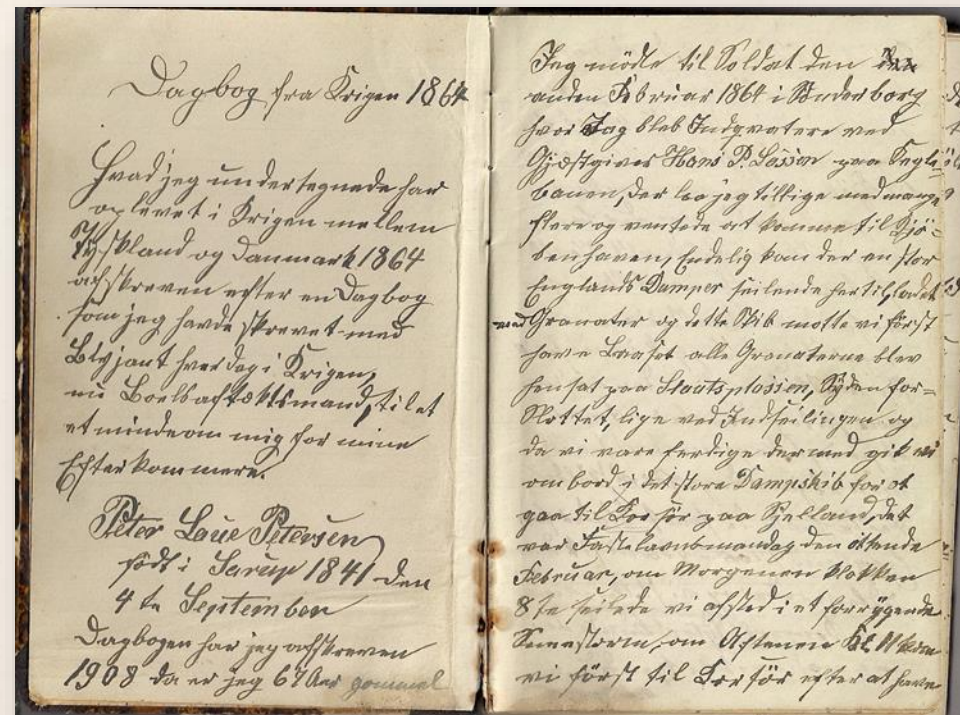 Dagbog fra Krigen 1864
Hvad jeg undertegnede har
oplevet i Krigen mellem
Tyskland og Danmark 1864
afskreven efter en Dagbog
som jeg havde skrevet med
Blyjant hver dag i Krigen,
nu Boelsaftægtsmand, til et
et minde om mig for mine
Efterkommere.
Peter Laue Petersen
født i Sarup 1841 den
4 te September
Dagbogen har jeg afskreven
1908 da er jeg 67 Aar gammel
Jeg mödte til Soldat den
anden Februar 1864 i Sønderborg
hvor Jag bleb Indqvatere ved
Gjæstgiver Hans P. Lassen paa Kegle
banen, der laa jeg tillige med mange
flere og ventede at komme til Kjö-
benhaven, Endelig kom der en stor
Englands Damper seilende hertil, ladet
med Granater og dette Skib motte vi först
have Laaset alle Granaterne blev
hensat paa Slaatsplassen, Syden for-
Slottet, lige ved Indseilingen og
da vi vare ferdige dermed gik vi
om bord i det store Dampskib for at
gaa til Korsör paa Sjelland, det
var Fastelavnsmandag den ottende
Februar, om Morgenen Klokken
8 te seilede vi afsted i et forrygende
Snnestorm, om Aftenen Kl. 11 kom
vi först til Korsör efter at have